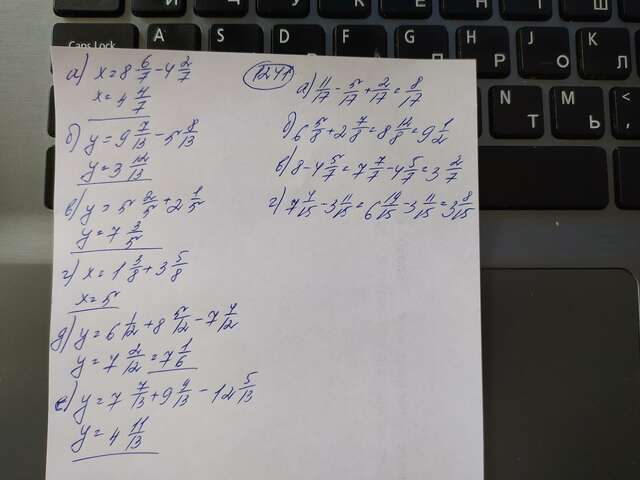 Caps Lock
а) x = 8 6/7 - 4 2/7
x = 4 4/7
б) y = 9 7/13 - 5 8/13
y = 3 12/13
в) y = 5 2/5 + 2 1/5
y = 7 3/5
г) x = 1 3/8 + 3 5/8
x = 5
д) y = 6 1/12 + 8 5/12 - 7 4/12
y = 7 2/12 = 7 1/6
е) y = 7 7/13 + 9 9/13 - 12 5/13
y = 4 11/13
1241
а) 11/17 - 5/17 + 2/17 = 8/17
б) 6 5/8 + 2 7/8 = 8 12/8 = 9 1/2
в) 8 - 4 5/7 = 7 7/7 - 4 5/7 = 3 2/7
г) 7 4/15 - 3 11/15 = 6 19/15 - 3 11/15 = 3 8/15
J О
K Л
N Т
M Ь